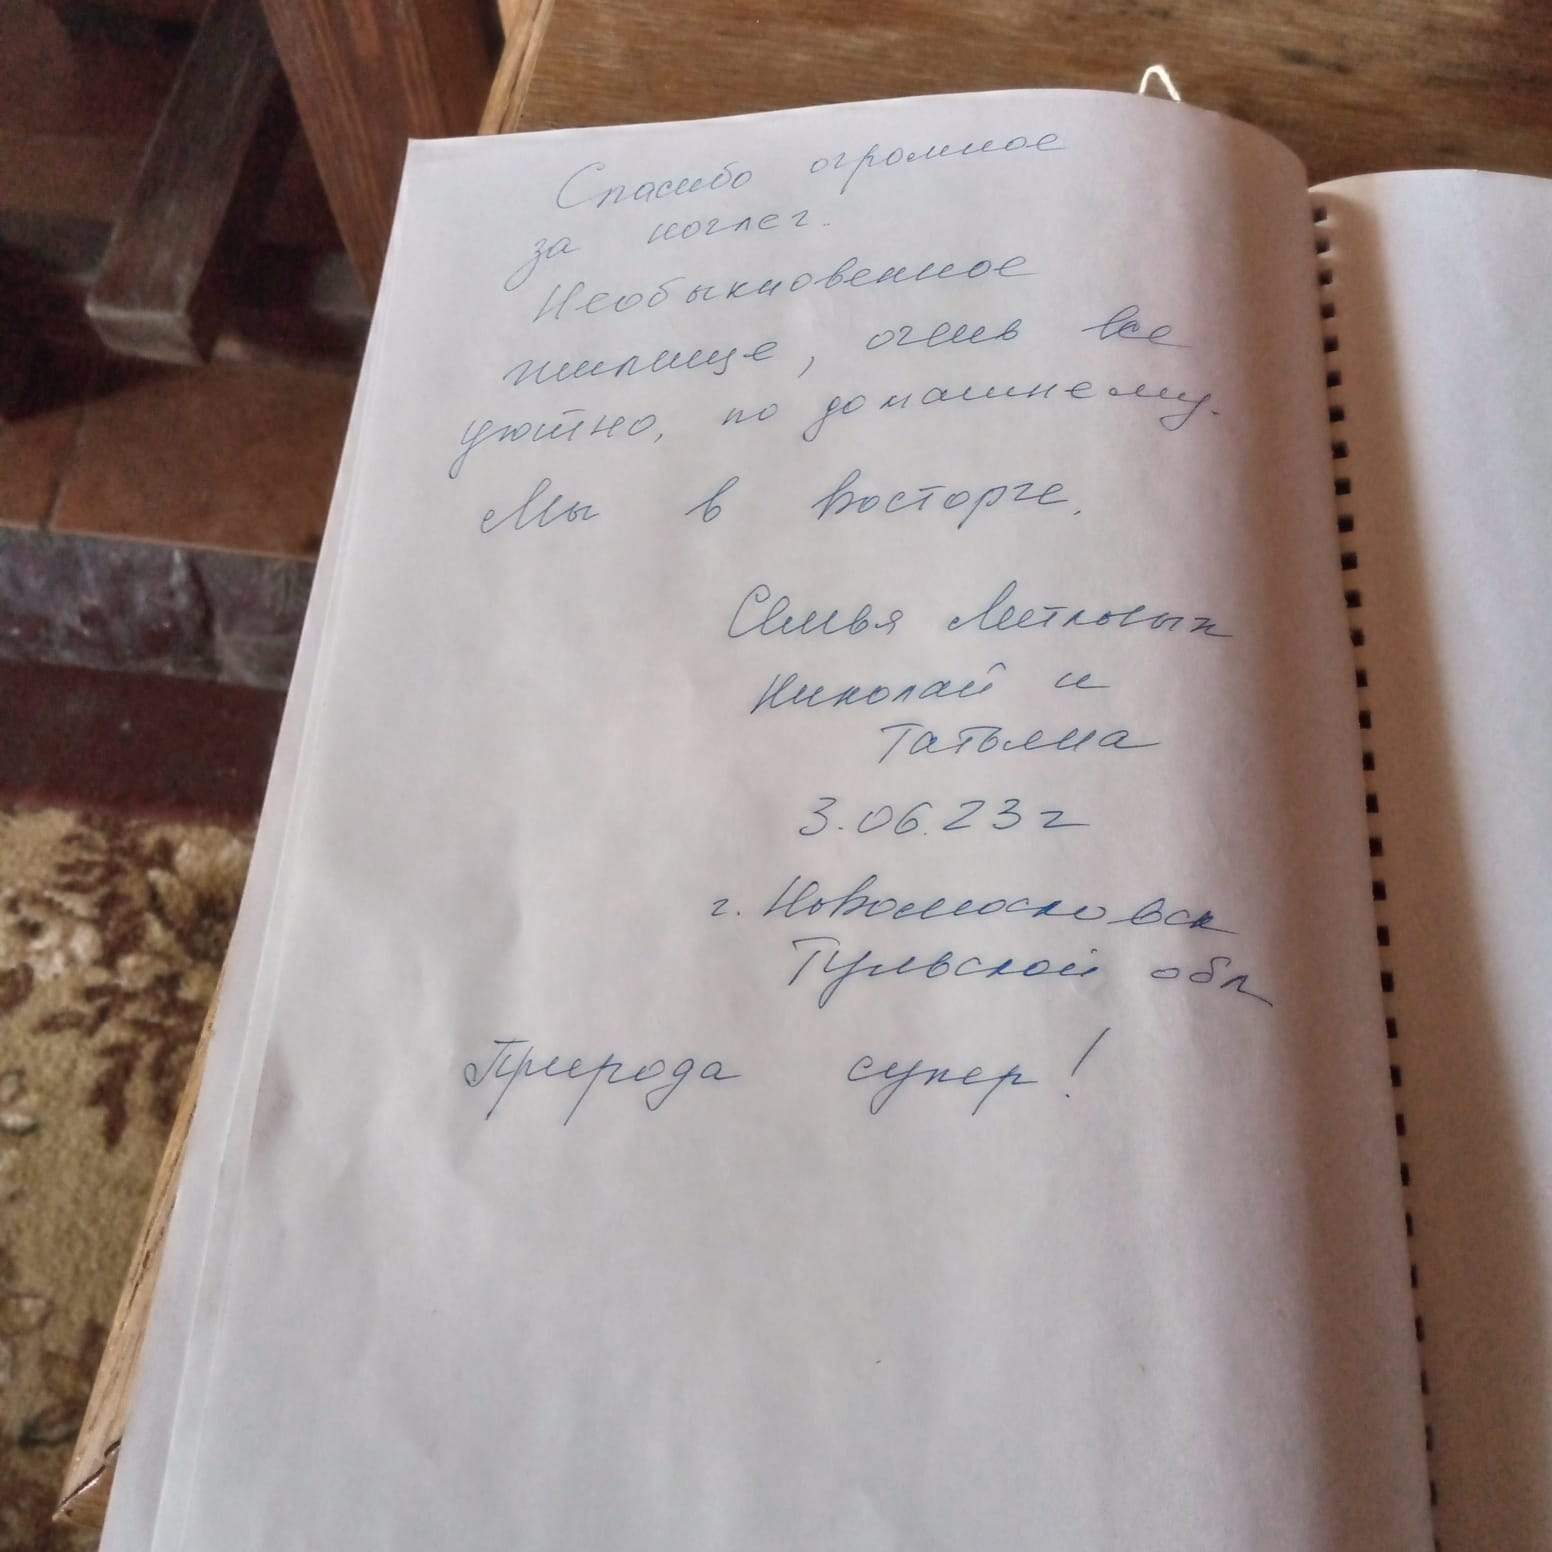 Спасибо огромное
за ночлег.
Необыкновенное
жилище, очень все
уютно, по домашнему.
Мы в восторге.
Семья
Николай и
Татьяна
3.06.23г
г. Новомосковск
Тульской обл
Природа супер!